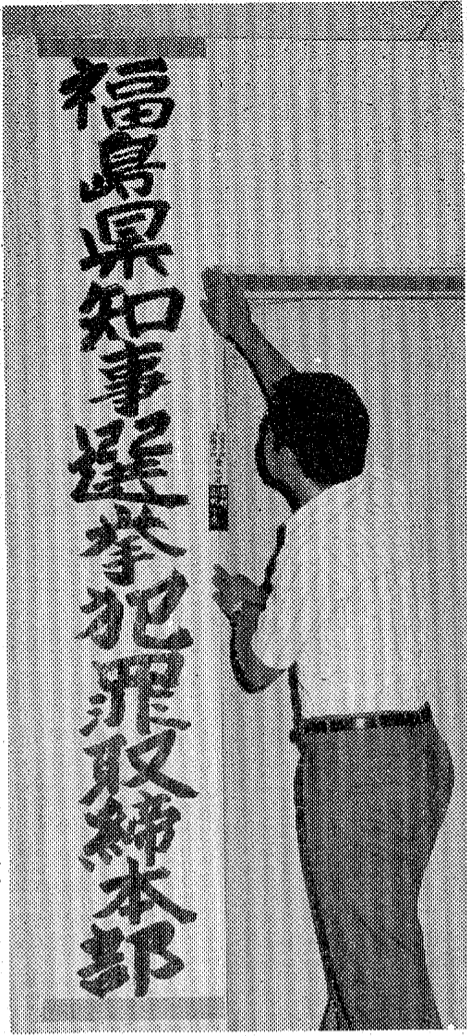 福島県知事選挙犯罪取締本部